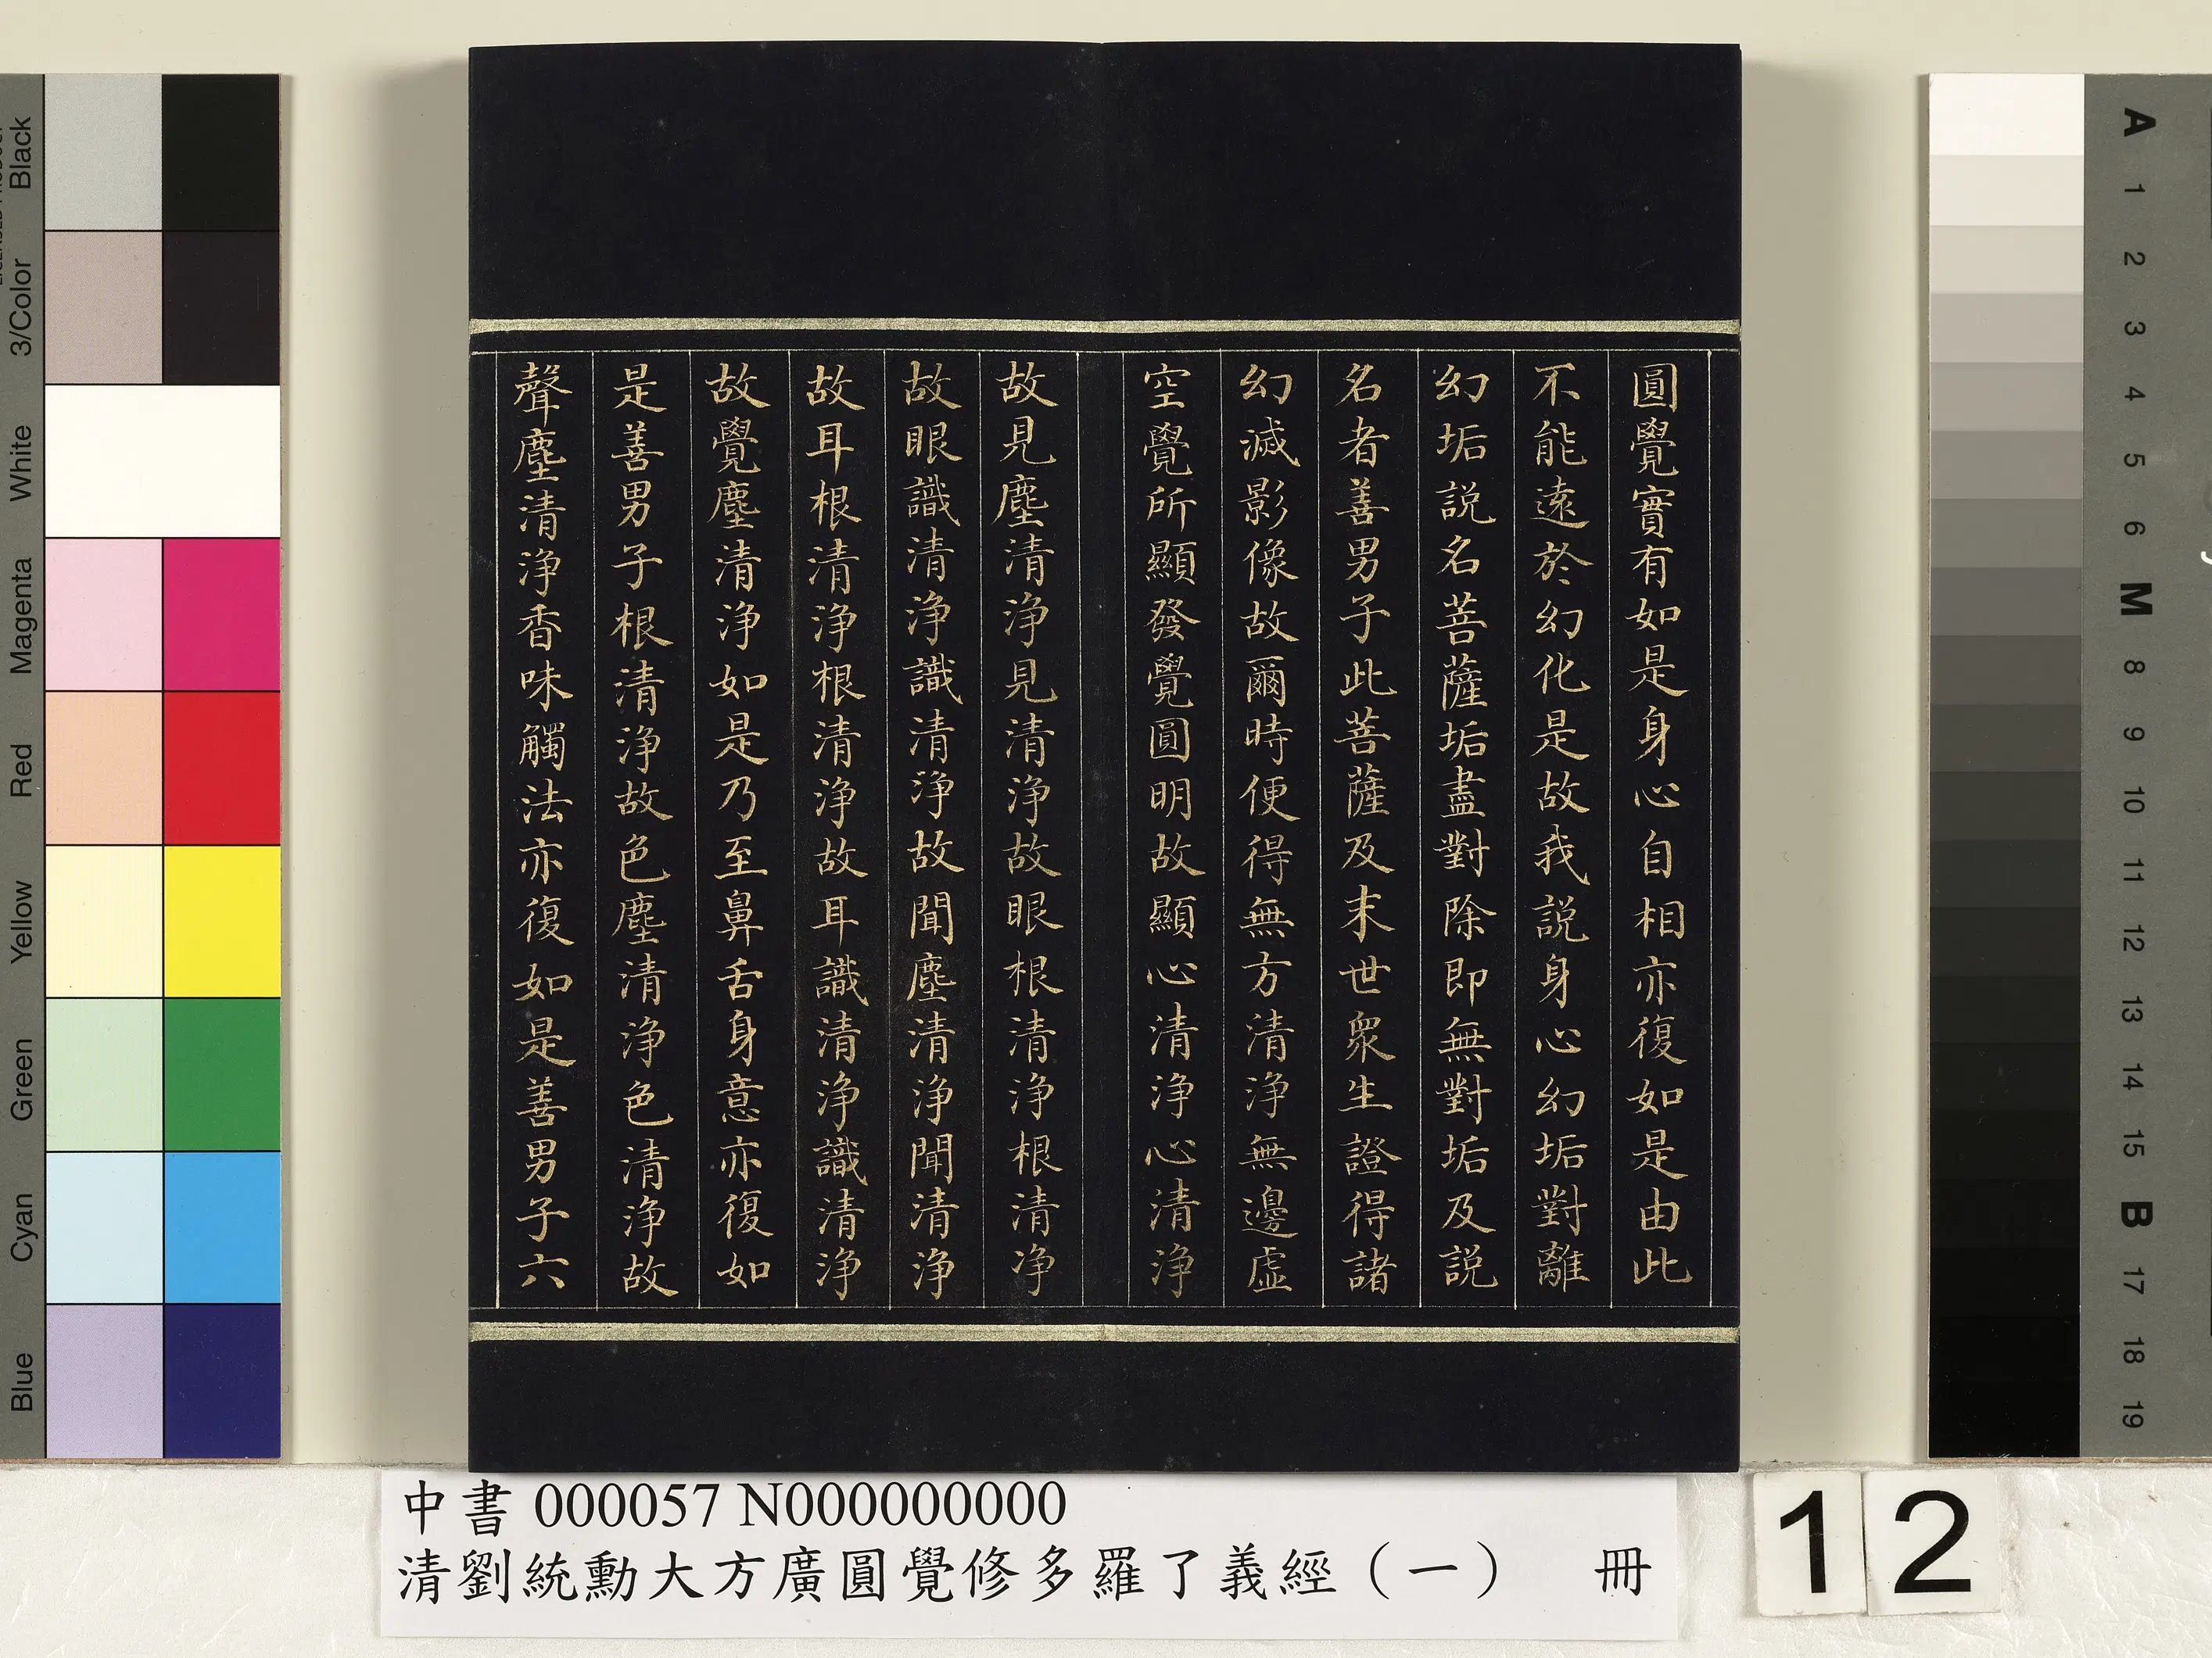 圓覺實有如是身心自相亦復如是由此
不能遠於幻化是故我説身心幻垢對離
幻垢説名菩薩垢盡對除即無對垢及説
名者善男子此菩薩及末世衆生證得諸
幻滅影像故爾時便得無方清淨無邊虛
空覺所顯發覺圓明故顯心清淨心清淨
故見塵清淨見清淨故眼根清淨根清淨
故眼識清淨識清淨故聞塵清淨聞清淨
故耳根清淨根清淨故耳識清淨識清淨
故覺塵清淨如是乃至鼻舌身意亦復如
是善男子根清淨故色塵清淨色清淨故
聲塵清淨香味觸法亦復如是善男子六
中書 000057 N000000000
清劉統勳大方廣圓覺修多羅了義經（一） 冊
12
Black
3/Color
White
Magenta
Red
Yellow
Green
Cyan
Blue
A
1
2
3
4
5
6
M
8
9
10
11
12
13
14
15
B
17
18
19